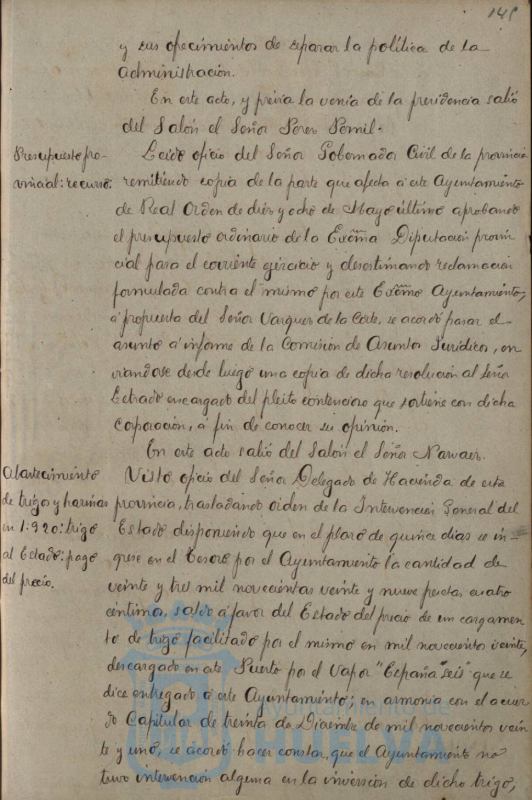 145
y sus ofrecimientos de separar la política de la
administración.
En este acto, y previa la venia de la presidencia salió
del Salón el Señor Perez Pomil.
Presupuesto pro-
vincial: recurso.
Leido oficio del Señor Gobernador Civil de la provincia
remitiendo copia de la parte que afecta a este Ayuntamiento
de Real Orden de diez y ocho de Mayo último aprobando
el presupuesto ordinario de la Excma Diputación provin
cial para el corriente ejercicio y desestimando reclamacion
formulada contra el mismo por este Excmo Ayuntamiento,
á propuesta del Señor Vazquez de la Corte, se acordó pasar el
asunto á informe de la Comisión de Asuntos Juridicos, en
viandose desde luego una copia de dicha resolución al Señor
Letrado encargado del pleito contencioso que sostiene con dicha
Coporación, á fin de conocer su opinión.
En este acto salió del Salón el Señor Narvaez.
Abastecimiento
de trigos y harinas
en 1.920: trigo
al Estado: pago
del precio.
Visto oficio del Señor Delegado de Hacienda de esta
provincia, trasladando orden de la Intervencion General del
Estado disponiendo que en el plazo de quince dias se in-
grese en el Tesoro por el Ayuntamiento la cantidad de
veinte y tres mil novecientas veinte y nueve pesetas cuatro
centimos, saldo á favor del Estado del precio de un cargamen
to de trigo facilitado por el mismo en mil novecientos veinte,
descargado en este Puerto por el Vapor "España seis" que se
dice entregado a este Ayuntamiento; en armonia con el acuer
do Capitular de treinta de Diciembre de mil novecientos vein
te y uno, se acordó hacer constar, que el Ayuntamiento no
tuvo intervención alguna en la inversión de dicho trigo,